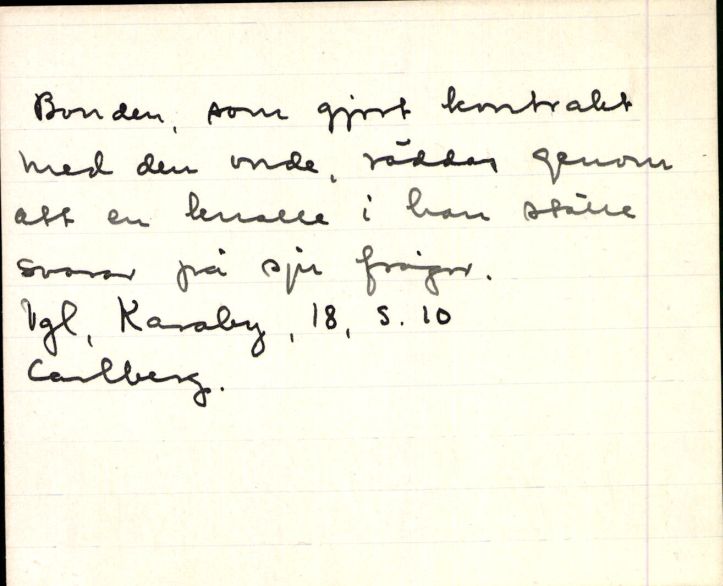 Bonden, som gjort kontrakt
med den onde, räddas genom
att en i han ställe
svarar på sju frågor.
Vgl, Karaby, 18, S. 10
Carlberg.